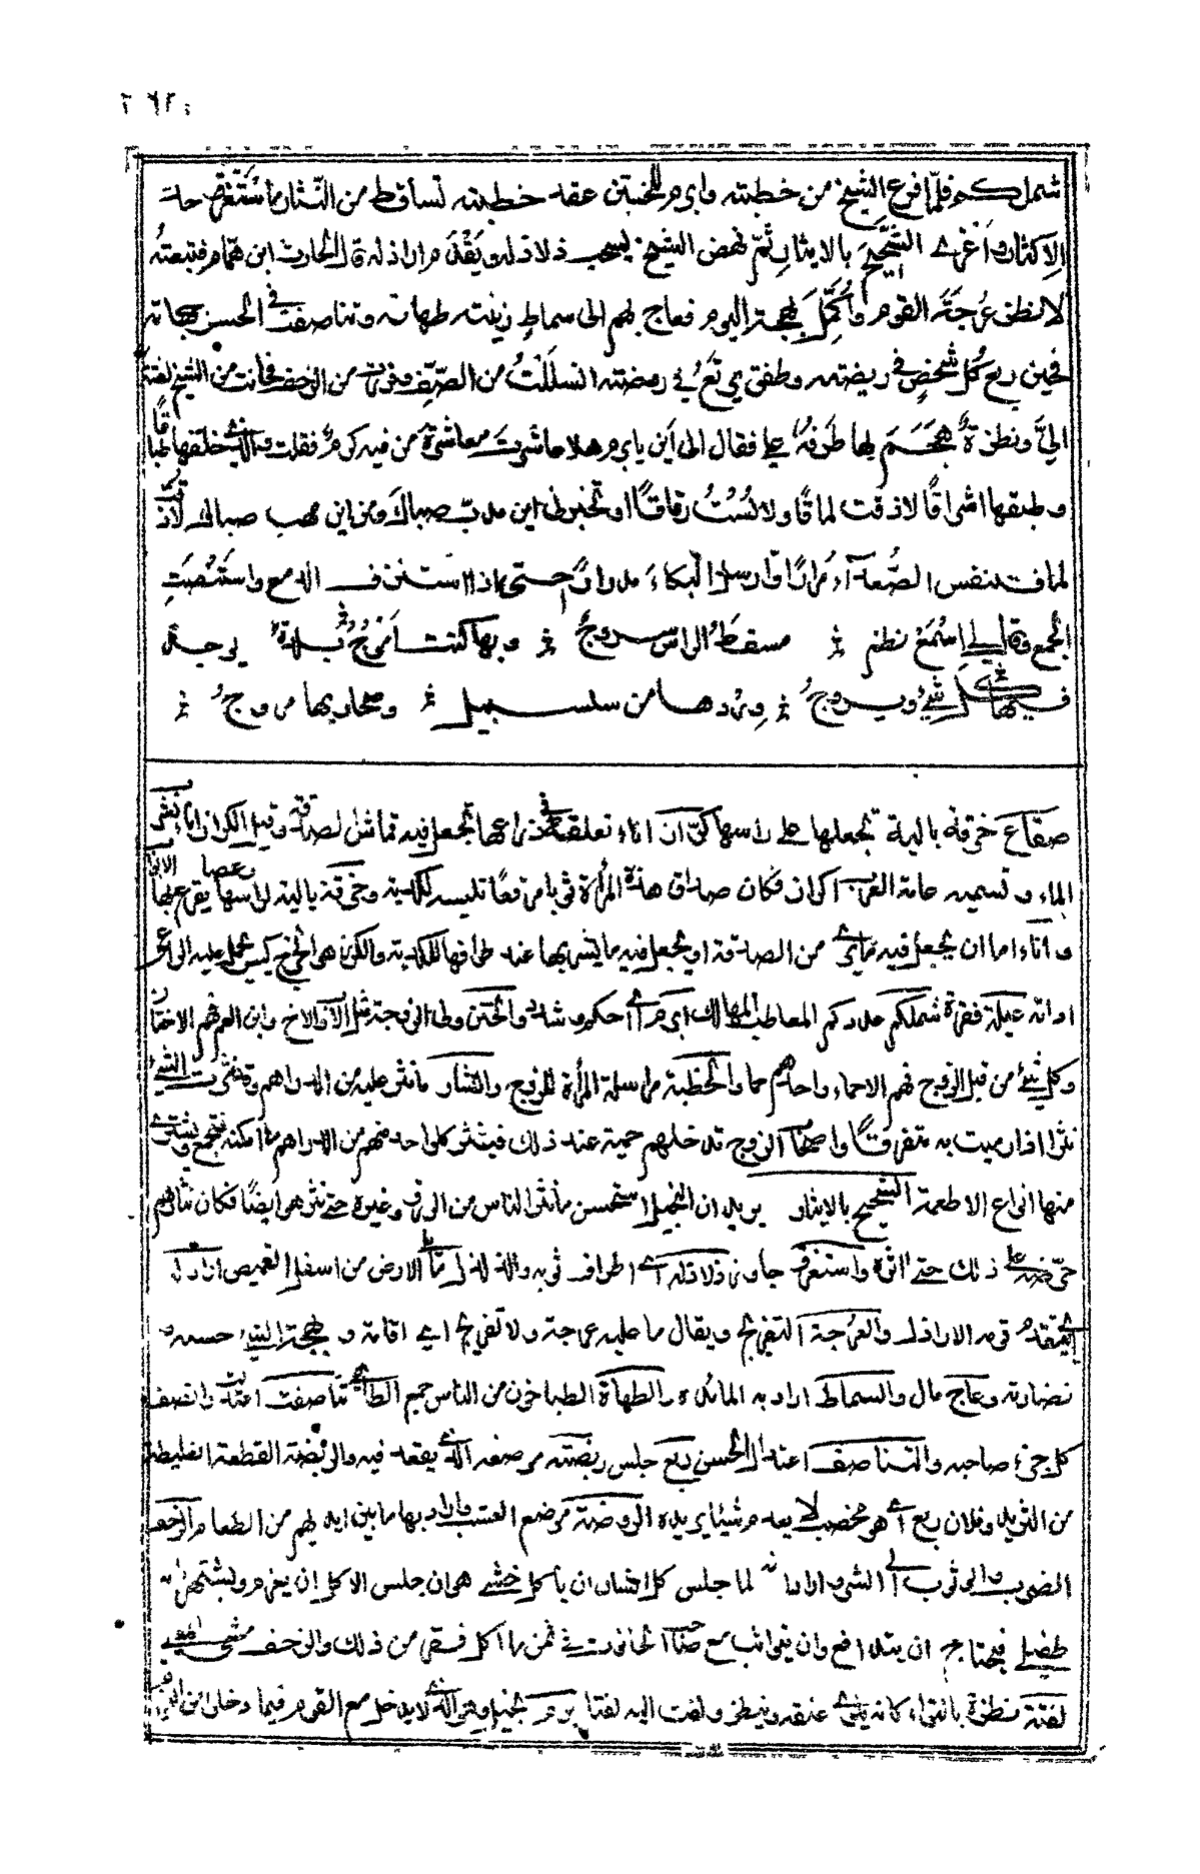 شملكم فلمّا فرغ الشيخ من خطبته وابرم للختن عقد خطبته تساقط من النّثار ما استغرق حدّ
الاكثار واغرى الشّحيح بالايثار ثمّ نهض الشيخ يسحب ذلاذله ويقدم اراذله قال الحارث ابن همّام فتبعته
لانظر عرجة القوم واكمّل بهجة اليوم فعاج بهم الى سماط زيّنته طهاته وتناصفت فى الحسن جهاته
فحين ربع كل شخص فى ربضته وطفق يرتع فى روضته انسللت من الصّفّ وفررت من الزحف فحانت من الشيخ لفتة
الىّ ونظرة هجم بها طرفه علىّ فقال الى اين يا برم هلا عاشرت معاشرة من فيه كرم فقلت والذى خلقها طباقا
وطبقها اشراقا لا ذقت لماقا ولا لست رقاقا او تخبرنى اين مدبّ صباك ومن اين مهب صباك
فتنفس الصّعدآء مرارا وارسل البكاء مدرارا حتى اذا استنزف الدمع واستنصت
الجمع وقال لى استمع نظم مسقط الراس سروج وبها كنت اموج بلدة يوجد
فيها كل شئ ويروج وردها من سلسبيل وصحاريها مروج
صقاع خرقة بالية تجعلها على راسها اناء تعلقه فى ذراعها تجعل فيه
الماء وتسميه عامة العرب الكراز فكان صداق هذه المرأة ثوبا مرقعا تلبسه للكدية وخرقة بالية لراسها
واناء اما ان يجعل فيه من الصدقة او يجعل فيه ما تشربه عند طوافها للكدية
عيلة فقرة شملكم عددكم ابرم اى احكم وشد والختن ولى الزوجة مثل الاب والاخ وابن العم فهم الاختان
وكل شئ من قبل الزوج فهم الاحماء واحدهم حما والخطبة مراسلة المرأة للزوج والنثار ما نثر عليه من الدراهم وقد نثرت الشئ
نثرا اذا رميت به متفرقا واصحاب الزوج تدخلهم حمية عند ذلك فينثر كل واحد منهم من الدراهم ما امكنه فتجمع ويشترى
منها انواع الاطعمة الشحيح بالايثار يريد ان البخيل استحسن ما نثر الناس من الورق وغيره حتى نثر هو ايضا فكان نثارهم
ذلك حتى اثره واستغرق جاوز ذلاذله اى اطراف ثوبه والذلذل ما يلى الارض من اسفل القميص اراذله
يقدم قومه الاراذل والعرجة التعريج ويقال ما عليه عرجة ولا تعريج اى اقامة وبهجة الشئ حسنه
نضارته وعاج مال والسماط اراد به المائدة والطهاة الطباخون من الناس جمع الطاهى تناصفت اعتدلت وانصف
كل جزء صاحبه والتناصف اعتدال الحسن ربع جلس ربضته موضعه الذى يقعد فيه والربضة القطعة الغليظة
من الثريد وفلان ربع اى هو مخصب لا يعدم شيئا يريده الروضة موضع العشب واراد بها ما بين ايديهم من الطعام الزحف
لما جلس كل انسان ان ياكل خشى هو ان جلس الاكل ان يغرم
طفيلى فيحتاج ان يتدافع وان يتواثب مع الحانوت فى ثمن ما اكل ففر من ذلك والزحف مشى
لفتة نظرة بالتواء كانه يلوى عنقه وينظر ولفت اليه لفتا برم بخيل وهو الذى لا يدخل مع القوم فيما دخلوا